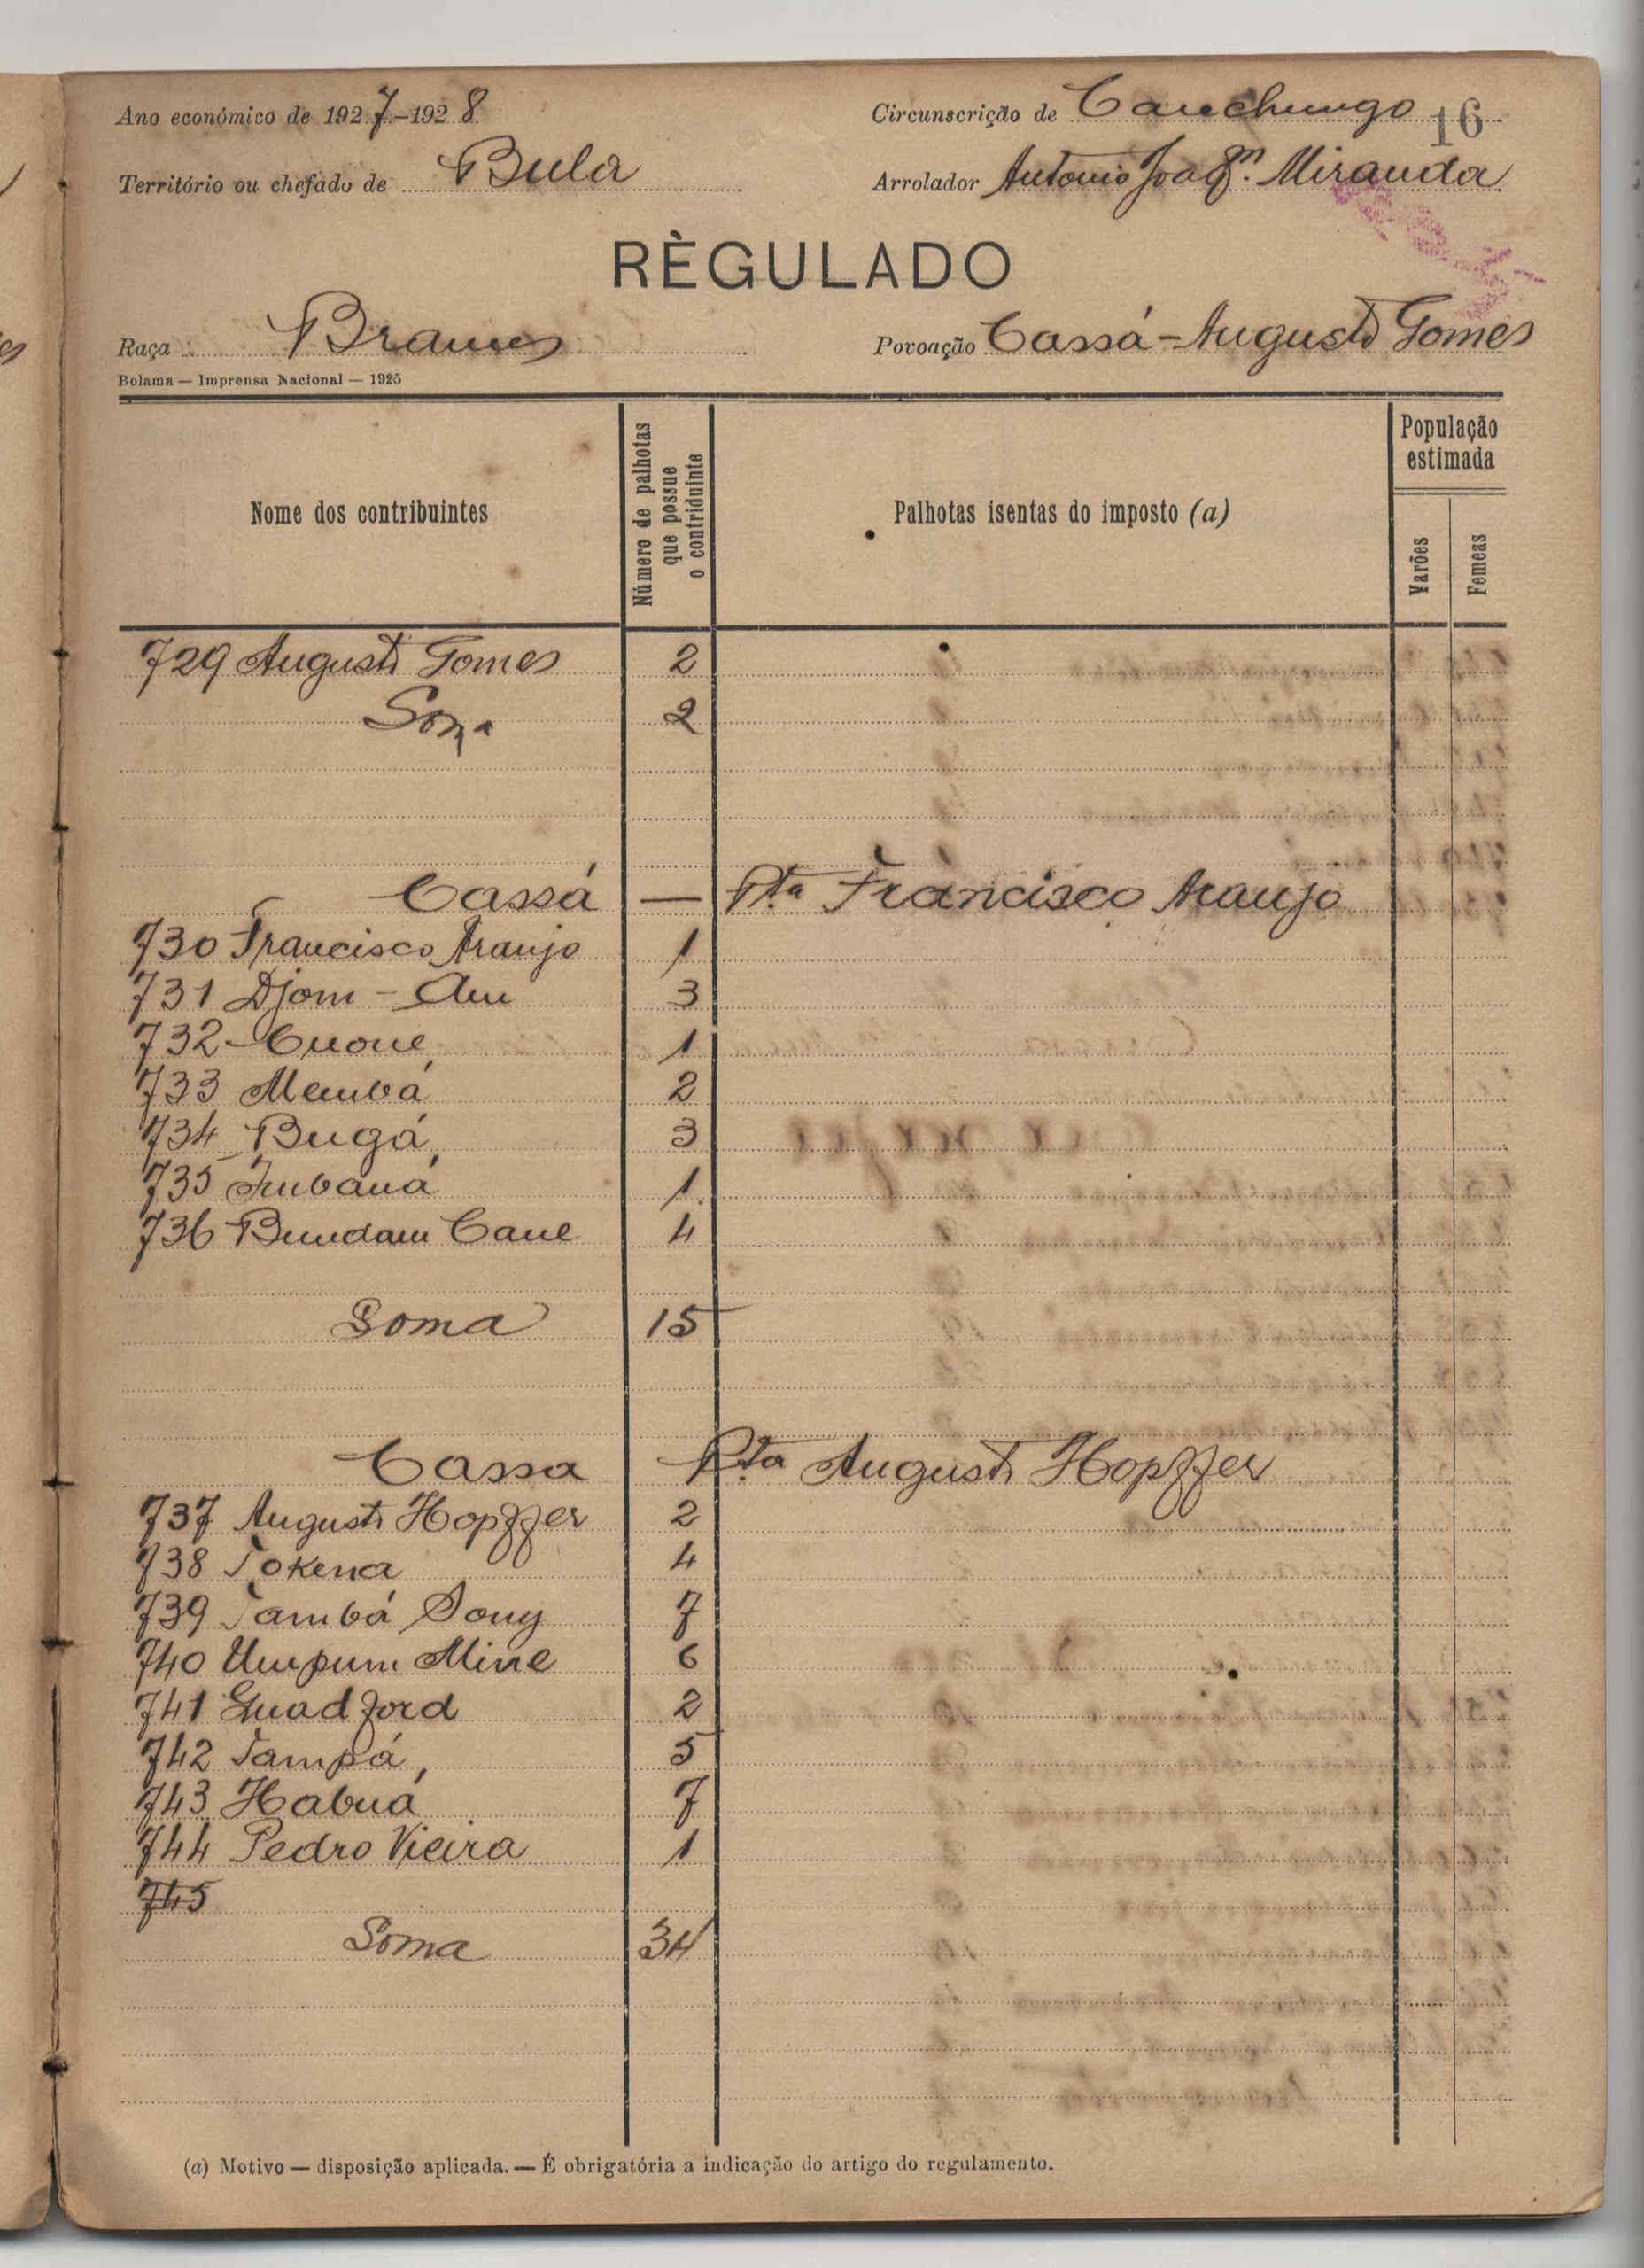 Ano económico de 1927-1928
Circunscrição de Canchungo 16
Território ou chefado de Bula
Arrolador Antonio Joaqm. Miranda
RÈGULADO
Raça Brames
Povoação Cassá-Augusto Gomes
Bolama — Imprensa Nacional — 1925
Nome dos contribuintes
Número de palhotas que possue o contriduinte
Palhotas isentas do imposto (a)
População estimada
Varões
Femeas
729 Augusto Gomes 2
Soma 2
Cassá — Pta Francisco Araujo
730 Francisco Araujo 1
731 Djom - Au 3
732 Cuone 1
733 Membá 2
734 Bugá 3
735 1
736 Bundam Cane 4
Soma 15
Cassa Pta Augusto Hopffer
737 Augusto Hopffer 2
738 Tokena 4
739 Tambá Sony 7
740 Umpum Mine 6
741 Guad ford 2
742 Tampá 5
743 Habuá 7
744 Pedro Vieira 1
745
Soma 34
(a) Motivo — disposição aplicada. — É obrigatória a indicação do artigo do regulamento.